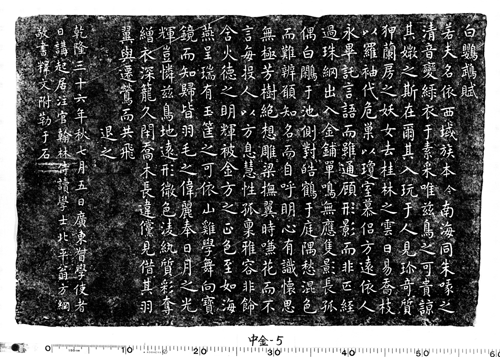 白鸚鵡賦
若夫名依西域族本今南海同朱喙之
清音變綠衣于素采唯兹鳥之可貴諒
其嬍之斯在爾其入玩于人見珎奇質
狎蘭房之妖女去桂林之雲日易喬枝
以羅袖代危巢以瓊室慕侶方遠依人
永畢託言語而雖通顧形影而非匹經
過珠網出入金鋪單鳴無應隻影長孤
偶白鷴于池側對皓鶴于庭隅愁混色
而難辨願知名而自呼明心有識懷思
無極芳樹絕想雕梁撫翼時嗛花而不
言每投人以方息慧性孤稟雅容非飾
含火德之明輝被金方之正色至如海
燕呈瑞有玉筐之可依山雞學舞向寶
鏡而知歸皆羽毛之偉麗奉日月之光
輝豈憐兹鳥地遠形微色凌紈質彩奪
繒衣深籠久閉喬木長違儻見借其羽
翼與遷鶯而共飛
退之
乾隆三十六年秋七月五日廣東督學使者
日講起居注官翰林侍讀學士北平翁方綱
敬書釋文附勒于石
中金-5
0 10 20 30 40 50 60